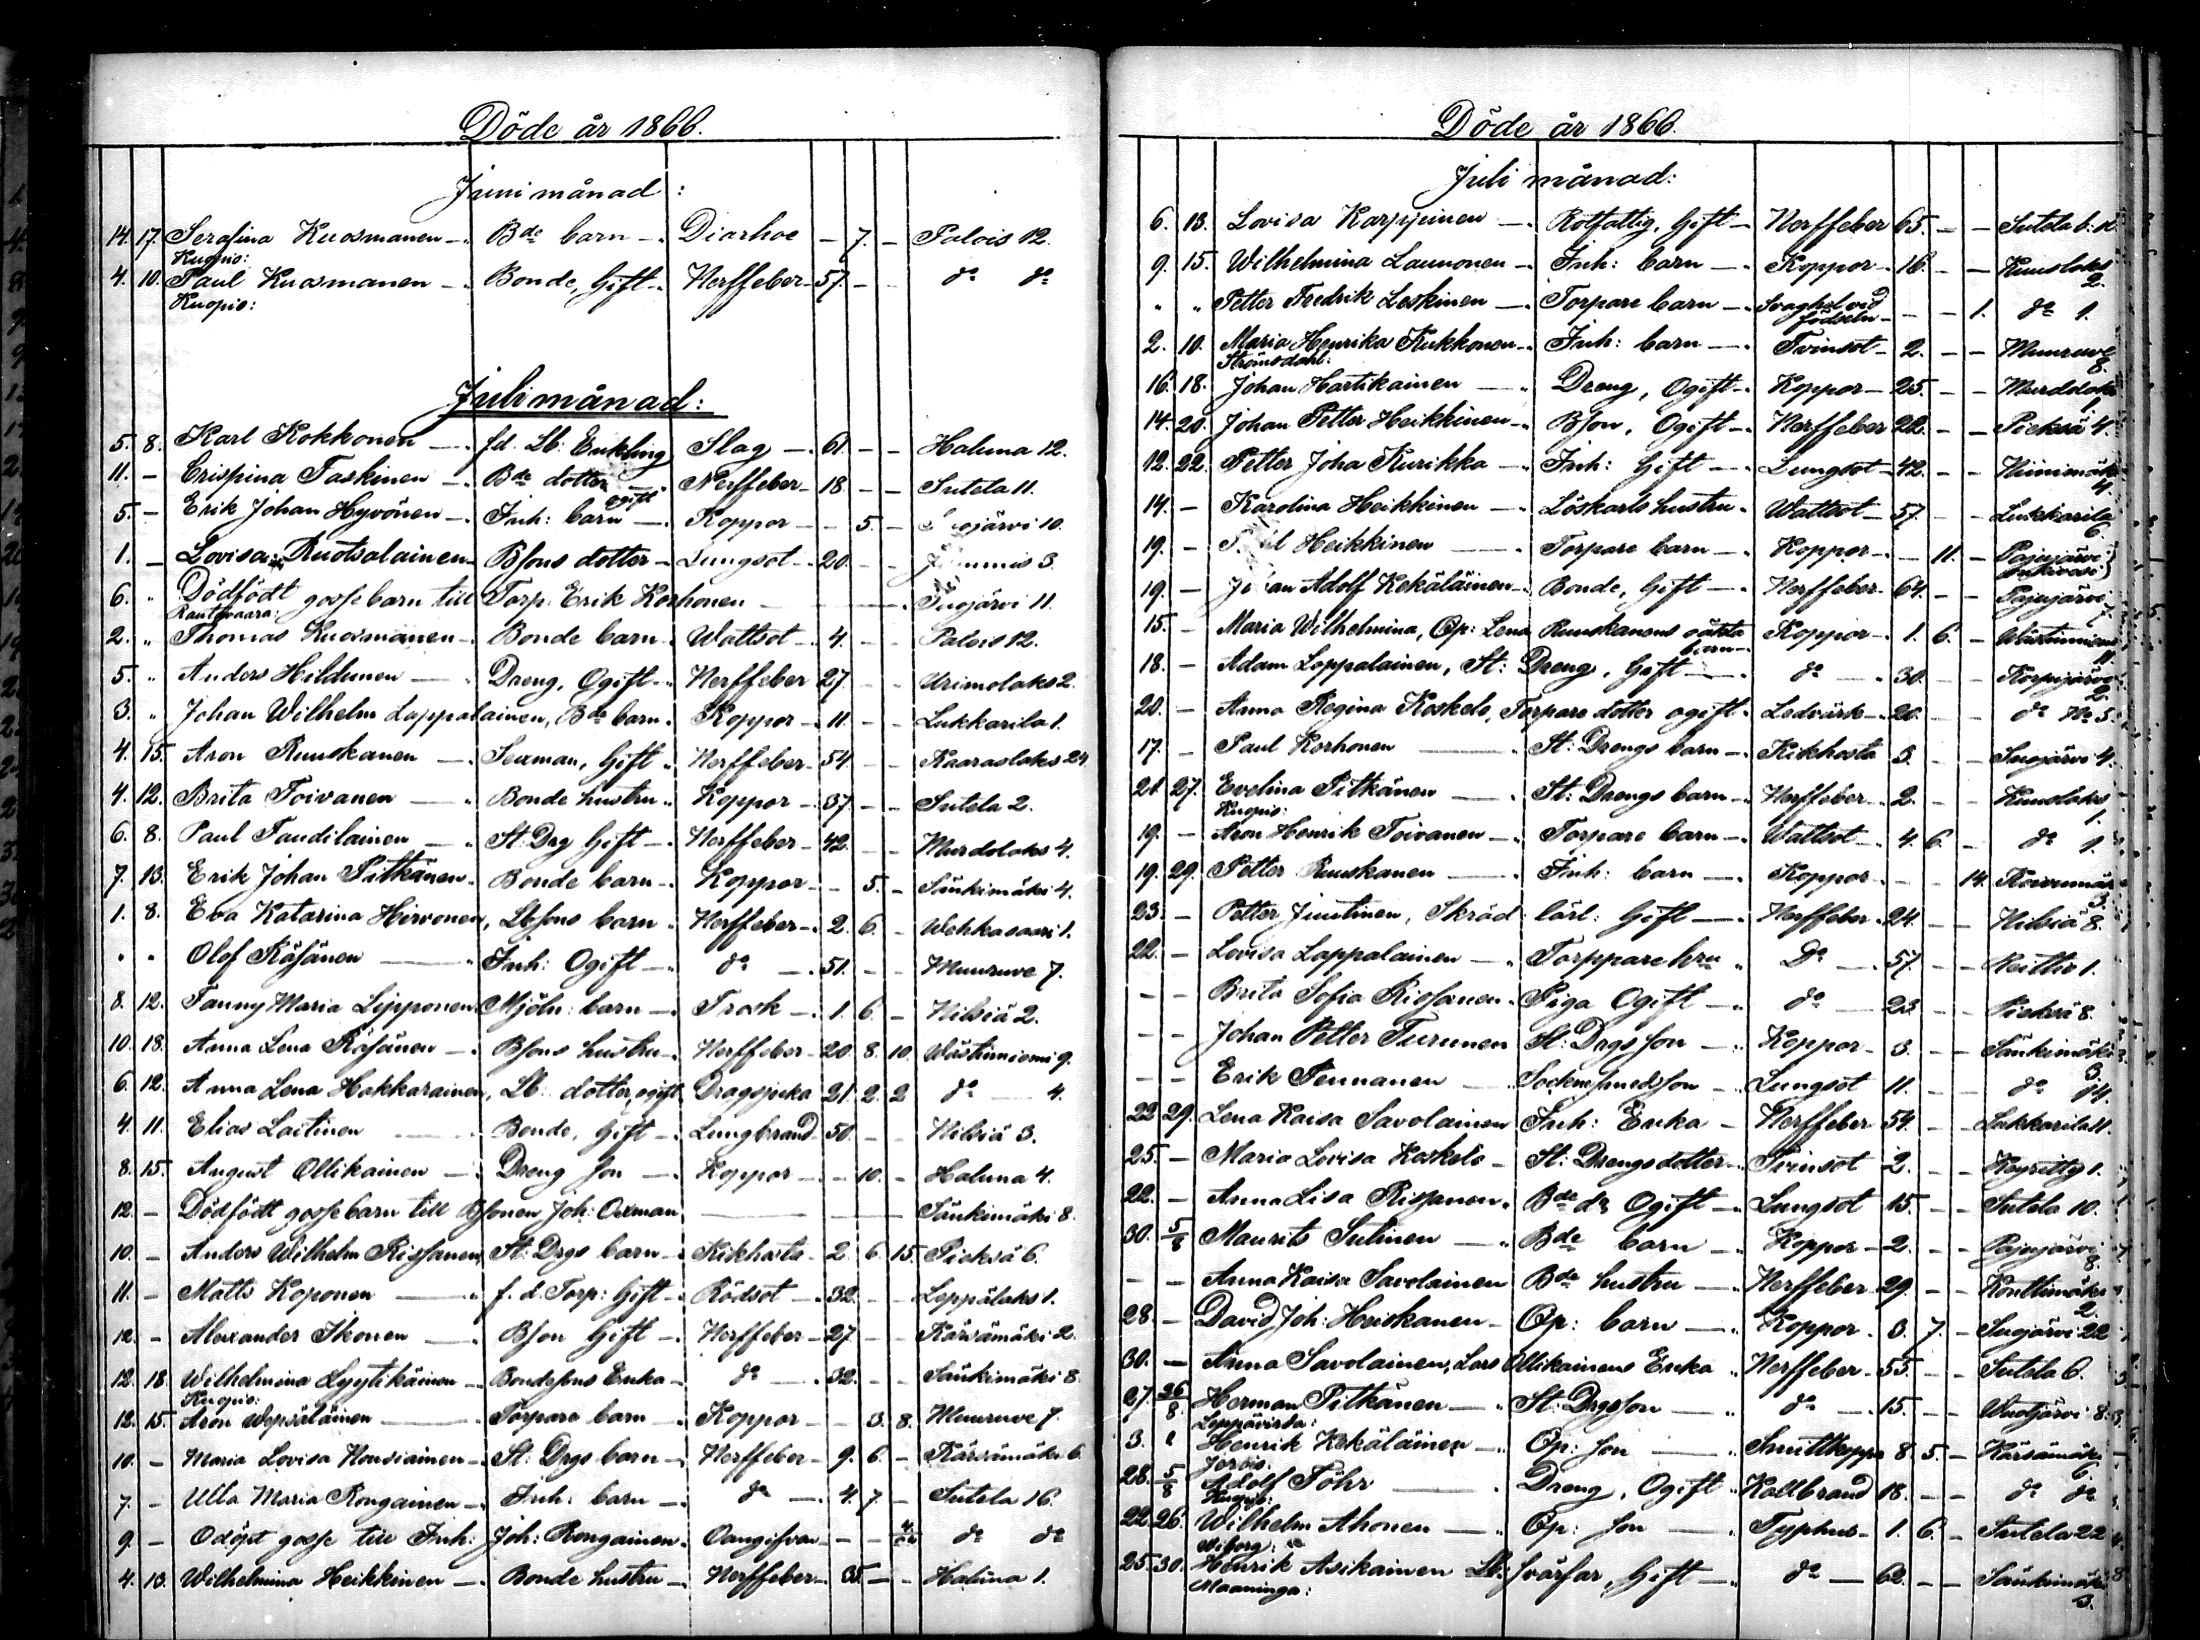 Döde år 1866.
Juni månad:
14. 17. Serafina Kuosmanen — Bde barn — Diarhoe — 7. — Palois 12.
Kuopio:
4. 10. Paul Kuosmanen — Bonde, Gift — Nerffeber — 57. — — do do
Kuopio:
Juli månad:
5. 8. Karl Kokkonen — fd. Lb: Enkling Slag — 61. — — Haluna 12.
11. — Crispina Taskinen — Bde dotter ogift Nerffeber — 18. — — Sutela 11.
5. — Erik Johan Hyvönen — Inh: barn — Koppor — — 5. — 10.
1. — Lovisa Ruotsalainen Bsons dotter — Lungsot — 20. — — 3.
6. " Dödfödt gossebarn till Torp. Erik Korhonen — Sugjärvi 11.
Rautavaara:
2. " Thomas Kuosmanen — Bonde barn — Wattsot — 4. — — Palois 12.
5. " Anders Hildunen — Dreng, Ogift — Nerffeber 27. — — Urimolaks 2.
3. " Johan Wilhelm Lappalainen, Bde barn. Koppor — 11. — — Lukkarila 1.
4. 15. Aron Ruuskanen — Sexman, Gift " Nerffeber — 54. — — Kaaraslaks 24
4. 12. Brita Toivanen — Bonde hustru " Koppor — 37. — — Sutela 2.
6. 8. Paul Taudilainen — St: Drg Gift — Nerffeber — 42. — — Murdolaks 4.
7. 13. Erik Johan Pitkänen. Bonde barn — Koppor — — 5. — Sänkimäki 4.
1. 8. Eva Katarina Hirvonen, Lbsons barn " Nerffeber — 2. 6. — Wehkasaari 1.
" " Olof Räsänen — Inh: Ogift — do — 51. — — Muuruve 7.
8. 12. Fanny Maria Lipponen Mjöln: barn — Trosk — 1. 6. — Nilsiä 2.
10. 18. Anna Lena Räsänen — Bsons hustru — Nerffeber — 20. 8. 10. Wästinniemi 9.
6. 12. Anna Lena Hakkarainen, Lb: dotter, ogift Dragsjuka 21. 2. 2 do — 4.
4. 11. Elias Laitinen — Bonde, Gift — Lungbrand. 50. — — Nilsiä 3.
8. 15. August Ollikainen — Dreng son — Koppor — — 10. — Haluna 4.
12. — Dödfödt gossebarn till Bsonen Joh: Oxman — Sänkimäki 8.
10. — Anders Wilhelm Rissanen, St: Drgs barn — Kikhosta — 2. 6. 15. Pieksä 6.
11. — Matts Koponen — f. d. Torp: Gift — Rödsot — 32. — — Leppälaks 1.
12. — Alexander Ikonen — Bson Gift — Nerffeber — 27. — — Kärsämäki 2.
12. 18. Wilhelmina Lyytikäinen — Bondesons Enka — do — 32. — — Sänkimäki 8.
Kuopio:
12. 15. Aron Wepsäläinen — Torpare barn — Koppor — — 3. 8. Muuruve 7.
10. — Maria Lovisa Nousiainen — St: Drgs barn — Nerffeber — 9. 6. — Kärsämäki 6.
7. — Ulla Maria Rongainen — Inh: barn — do — 4. 7. — Sutela 16.
9. — Odöpt gosse till Inh: Joh: Rongainen. Oangifvan — — — do do
4. 13. Wilhelmina Heikkinen — Bonde hustru — Nerffeber — 35. — — Haluna 1.
Döde år 1866.
Juli månad:
6. 13. Lovisa Karppinen — Rotfattig, Gift — Nerffeber 65. — — Sutela
9. 15. Wilhelmina Launonen — Inh: barn — Koppor — 16. — — Kuuslaks
2.
" " Petter Fredrik Leskinen — Torpare barn — Svaghet vid
födseln — — — 1. do 1.
2. 10. Maria Henrika Kukkonen — Inh: barn — Tvinsot — 2. — — Muuruve
Strömsdahl: 8.
16. 18. Johan Hartikainen — Dreng, Ogift — Koppor — 25. — — Murdolaks
14. 20. Johan Petter Heikkinen — Bson, Ogift — Nerffeber 22. — — Pieksä 4.
12. 22. Petter Joha Kurikka — Inh: Gift — Lungsot — 42. — —
4.
14. — Karolina Heikkinen — Löskarls hustru. Wattsot — 57. — — Lukkarila
6.
19. — Heikkinen — Torpare barn — Koppor — — 11. — Pajujärvi
19. — Johan Adolf Kekäläinen — Bonde, Gift — Nerffeber — 64. — — Pajujärvi
7.
15. — Maria Wilhelmina, Qp: Lena Ruuskanens oäkta
barn — Koppor — 1. 6. — Wästinniemi
11.
18. — Adam Loppalainen, St: Dreng, Gift — do — 30. — — Korpijärvi
2.
20. — Anna Regina Koskelo, Torpare dotter ogift. Ledvärk — 20. — — do No 3.
17. — Paul Korhonen — St: Drengs barn — Kikhosta 3. — — Sugjärvi 4.
21. 27. Evelina Pitkänen — St: Drengs barn — Nerffeber — 2. — — Kuuslaks
Kuopio: 1.
19. — Aron Henrik Toivanen — Torpare barn — Wattsot — 4. 6. — do 1.
19. 29. Petter Ruuskanen — Inh: barn — Koppor — — — 14.
3.
23. — Petter Juutinen, Skräd: lärl: Gift — Nerffeber — 24. — — Nilsiä 8.
22. — Lovisa Lappalainen — Torppare hru " Do — 57. — — Keittiv 1.
— — Brita Sofia Rissanen. Piga Ogift — do — 23 — — Pieksä 8.
— — Johan Petter Turunen St: Drgs son — Koppor — 3. — — Sänkimäki
3.
— — Erik Pennanen — Sockensmedsson — Lungsot 11. — — do 14.
22. 29. Lena Kaisa Savolainen Inh: Enka — Nerffeber 54. — — Lukkarila 11.
25. — Maria Lovisa Koskelo — St: Drengs dotter — Tvinsot 2. — — Koyritty 1.
22. — Anna Lisa Rissanen. Bde dr Ogift — Lungsot 15. — — Sutela 10.
30. 5/8 Maurits Sutinen — Bde barn — Koppor — 2. — — Pajujärvi
8.
— — Anna Kaisa Savolainen Bde hustru — Nerffeber 29. — — Konttimäki
2.
28. — David Joh: Heiskanen — Qp: barn — Koppor. 3. 7. — Sugjärvi 22
30. — Anna Savolainen, Lars Ollikainens Enka " Nerffeber — 55. — — Sutela 6.
27. 26/8. Herman Pitkänen — St: Drgsson — do — 15. — — Wuotjärvi 8.
Leppävirta:
3. Henrik Kekäläinen — Qp: son — Smittkoppa 8. 5. — Kärsämäki
Jorois. 6.
28. 5/8 Adolf Föhr — Dreng, Ogift " Kallbrand 18. — — do do
Kuopio:
22. 26. Wilhelm Ahonen — Qp: son — Typhus — 1. 6. — Sutela 22
Wiborg:
25. 30. Henrik Asikainen Lb: svärfar, Gift — do — 62. — — Sänkimäki
Maaninga: 3.